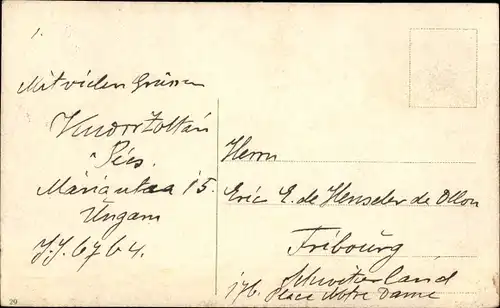 1.
Mit vielen Grüssen
Knorr Zoltán
Pécs.
Mária utca 15.
Ungarn
J.J. 6764.
29
Herrn
Eric E. de Henseler de Ollon
Fribourg
Schwitzerland
176. Place Notre Dame